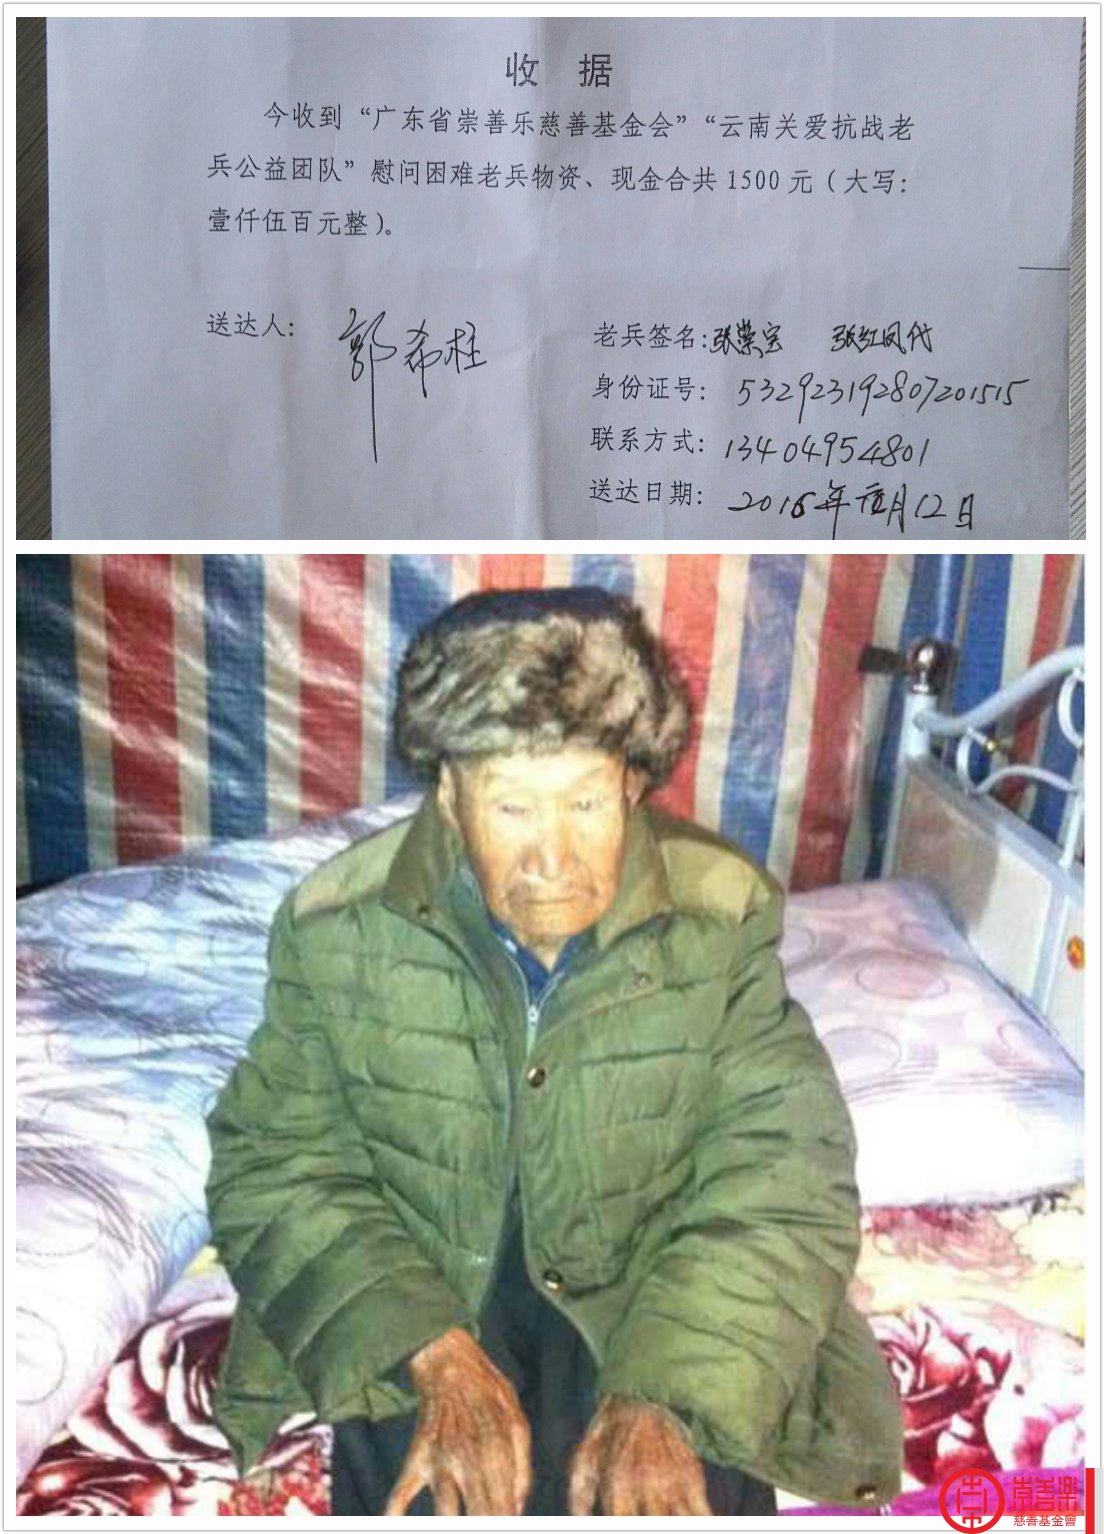 收 据
今收到“广东省崇善乐慈善基金会”“云南关爱抗战老
兵公益团队”慰问困难老兵物资、现金合共 1500 元（大写：
壹仟伍百元整）。
送达人： 郭希柱
老兵签名：张崇宝 张红凤代
身份证号： 532923192807201515
联系方式： 13404954801
送达日期： 2016年 月12日
崇善樂
慈善基金會